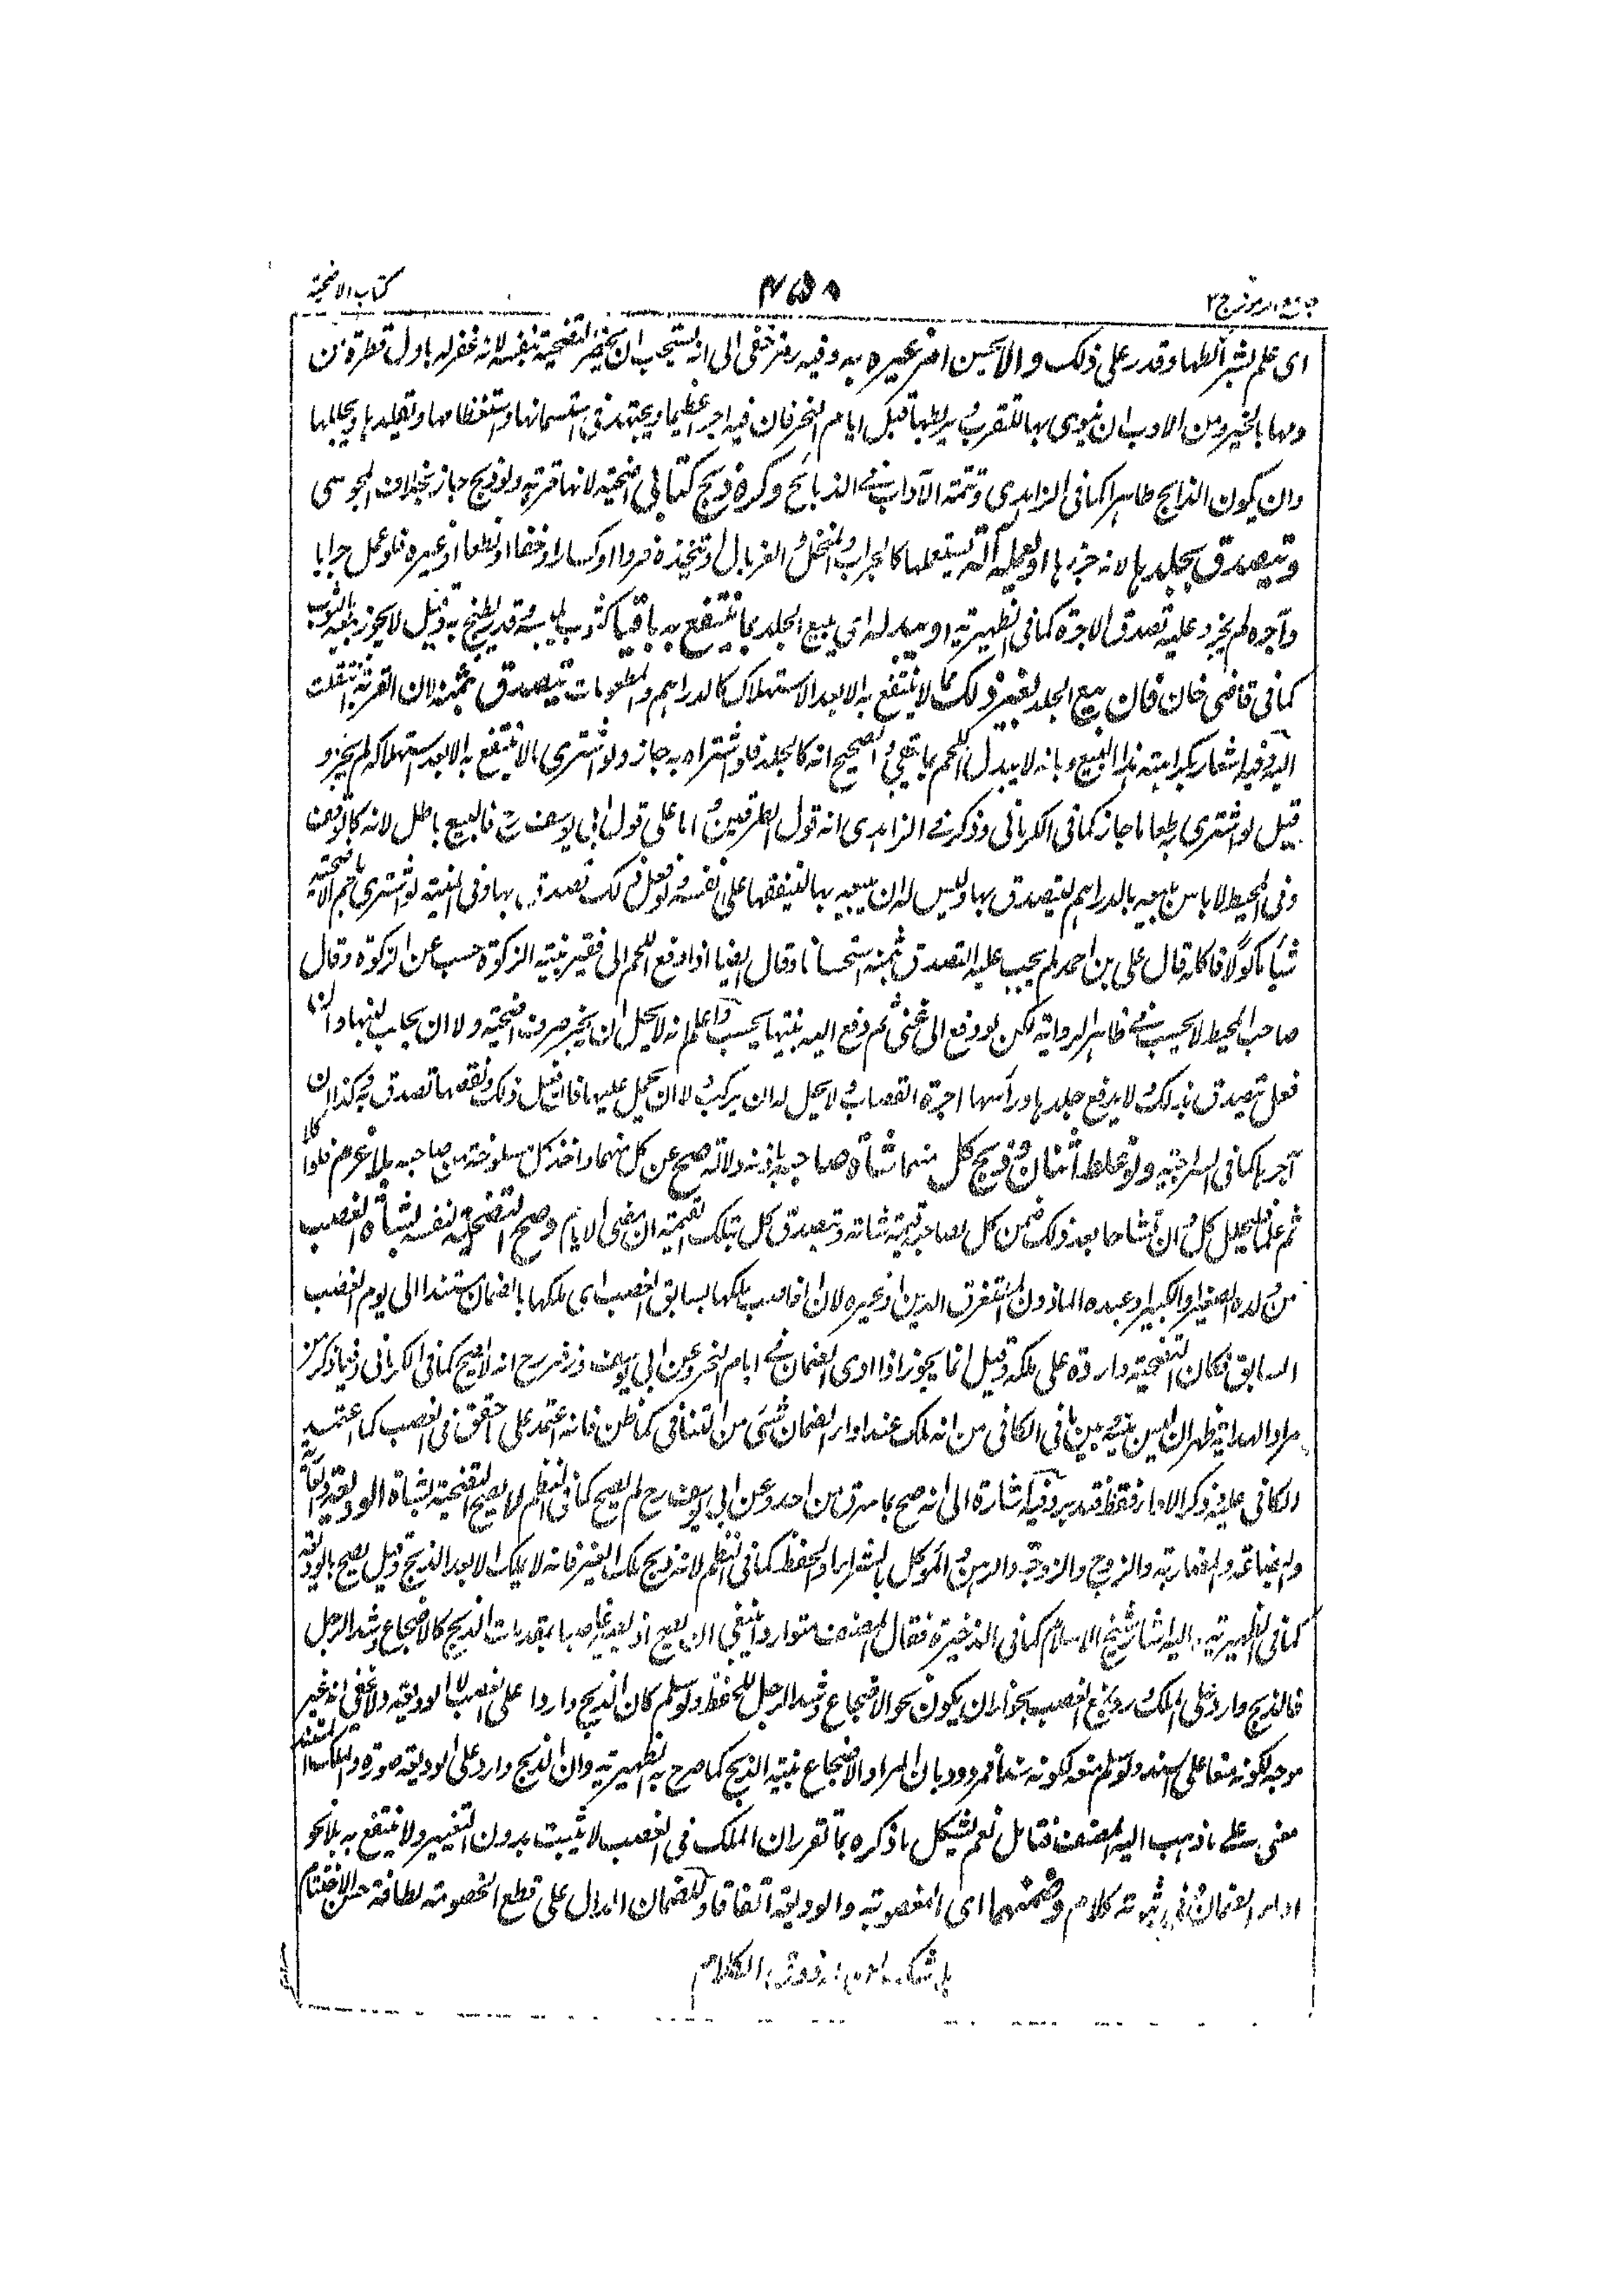 جامع الرموز ج ٢
٧٥٨
كتاب الاضحية
اى علم بشرائطها وقدر على ذلك والا يحسن امر غيره به وفيه رمز خفى الى انه يستحب ان يحضر التضحية بنفسه لانه غفر له باول قطرة من
دمها بالخبر ومن الادب ان ينوى بها التقرب ويربطها قبل ايام النحر فان فيه اجرا عظيما ويجتهد فى استسمانها واستعظامها وتقليدها وتجليلها
وان يكون الذابح طاهرا كما فى الزاهدى وتتمة الآداب فى الذبائح وكره ذبح كتابى اضحية لانها قربة ولو ذبح جاز بخلاف المجوسى
ويتصدق بجلدها لانه جزؤها او يعمله آلة يستعملها كالجراب والمنخل والغربال او يتخذه فروا او كساء او خفا او نطعا او غيره فلو عمل جرابا
وآجره لم يجز وعليه تصدق الاجرة كما فى الظهيرية او يبدله اى يبيع الجلد بما ينتفع به باقيا كثوب يلبسه وقدر يطبخ به وقيل لا يجوز بيعه بالثوب
كما فى قاضى خان فان بيع الجلد بغير ذلك مما لا ينتفع به الا بعد الاستهلاك كالدراهم والمطعومات يتصدق بثمنه لان القربة انتقلت
اليه وفيه اشعار بكراهته هذا البيع وبانه لا يبدل اللحم بما يبقى والصحيح انه كالجلد فلو اشتراه به جاز ولو اشترى ما لا ينتفع به الا بعد استهلاكه لم يجز و
قيل لو اشترى به طعاما جاز كما فى الكرمانى وذكر فى الزاهدى انه قول الطرفين واما على قول ابى يوسف رح فالبيع باطل لانه كالوقف
وفى المحيط لا باس ببيعه بالدراهم ليتصدق بها وليس له ان يبيعه بها لينفقها على نفسه ولو فعل ذلك تصدق بها وفى المنية لو اشترى بلحم الاضحية
شيئا ماكولا فاكله قال على بن احمد لم يجب عليه التصدق بثمنه استحسانا وقال ايضا اذا دفع اللحم الى فقير بنية الزكوة حسب عن الزكوة وقال
صاحب المحيط لا يحسب فى ظاهر الرواية لكن لو دفع الى غنى ثم دفع اليه بنيتها يحسب واعلم انه لا يحل ان يجز صوف اضحيته ولا ان يحلب لبنها واذا
فعل يتصدق بذلك ولا يدفع جلدها وراسها اجرة القصاب ولا يحل له ان يركب ولا ان يحمل عليها فان فعل ذلك ونقصها تصدق به وكذا ان
آجرها كما فى السراجية ولو غلط اثنان وذبح كل منهما شاة صاحبه بلا اذنه دلالة صح عن كل منهما واخذ كل مسلوخته من صاحبه بلا غرم فلو اكلا
ثم علما فليحلل كل وان تشاحا بعد ذلك ضمن كل لصاحبه قيمة شاته ويتصدق كل بتلك القيمة ان مضى الايام وصح التضحية لنفسه بشاة الغصب
من ولده الصغير او الكبير او عبده الماذون المستغرق الدين او غيره لان الغاصب يملكها بسابق الغصب اى يملكها بالضمان مستندا الى يوم الغصب
السابق فكان التضحية واردة على ملكه وقيل انما يجوز اذا ادى الضمان فى ايام النحر وعن ابى يوسف وزفر رح انه لا يصح كما فى الكرمانى وفيما ذكر من
مراد الهداية ظهر ان ليس بينه وبين ما فى الكافى من انه ملك عند اداء الضمان شئ من التنافى كما ظن فانه اعتمد على ما حقق فى الغصب كما اعتمد
الكافى عليه وذكر الاداء فقط فتدبر وفيه اشارة الى انه صح بما سرق من احد وعن ابى يوسف رح لم يصح كما فى النظم لا يصح التضحية بشاة الوديعة والعارية
والبضاعة والمضاربة والزوج والزوجة والرهن والموكل بالشراء والحفظ كما فى النظم لانه ذبح ملك الغير فانه لا يملك الا بعد الذبح وقيل يصح بالوديعة
كما فى الظهيرية واليه اشار شيخ الاسلام كما فى الذخيرة فقال المصنف متواردا ينبغى ان يصح اذ يصير غاصبا بمقدمات الذبح كالاضجاع وشد الرجل
فالذبح وارد على الملك ورد بمنع الغصب بجواز ان يكون نحو الاضجاع وشد الرجل للحفظ ولو سلم كان الذبح واردا على الغصب لا الوديعة ولا يخفى انه غير
موجه لكونه منعا على السند ولو سلم منعه لكونه سندا فمردود بان المراد الاضجاع بنية الذبح كما صرح به الظهيرية وان الذبح وارد على الوديعة صورة والملك المستند
معنى على ما ذهب اليه المصنف فتامل نعم يشكل ما ذكره بما تقرر ان الملك فى الغصب لا يثبت بدون التغيير ولا ينتفع به بلا نحو
اداء الضمان ففى ثبوته كلام وضمنهما اى المغصوبة والوديعة اتفاقا وللضمان الدال على قطع الخصومة لطافة حسن الاختتام
الكلام